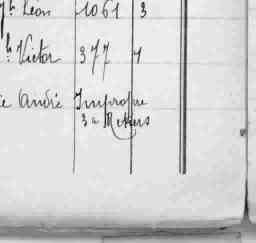 Léon 1061 3
Victor 377 4
André Impropre
3 a Rivers